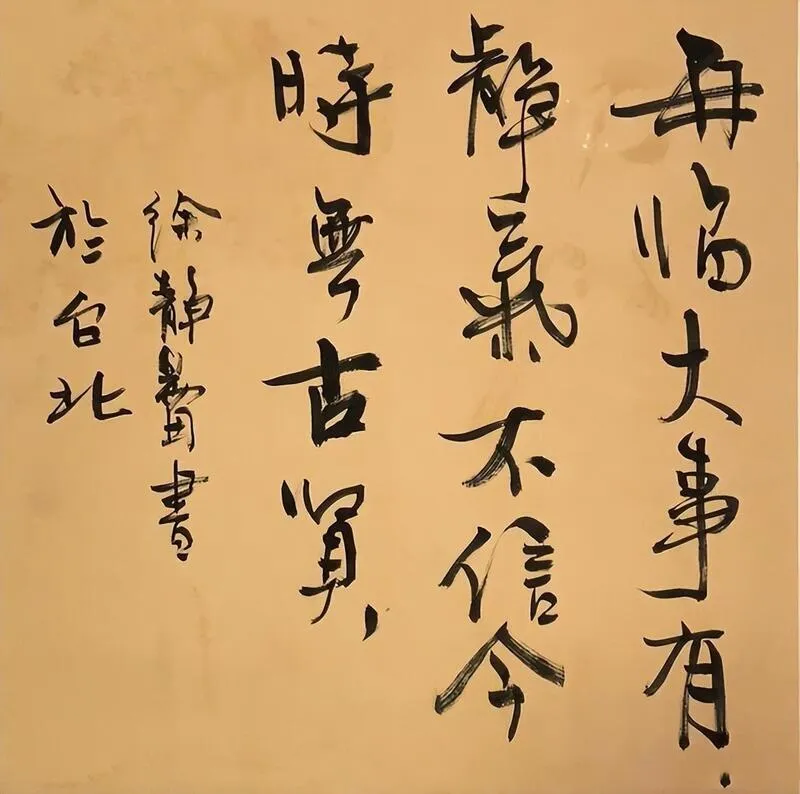 每临大事有
静氣不信今
時無古賢
徐静蕾書
於台北